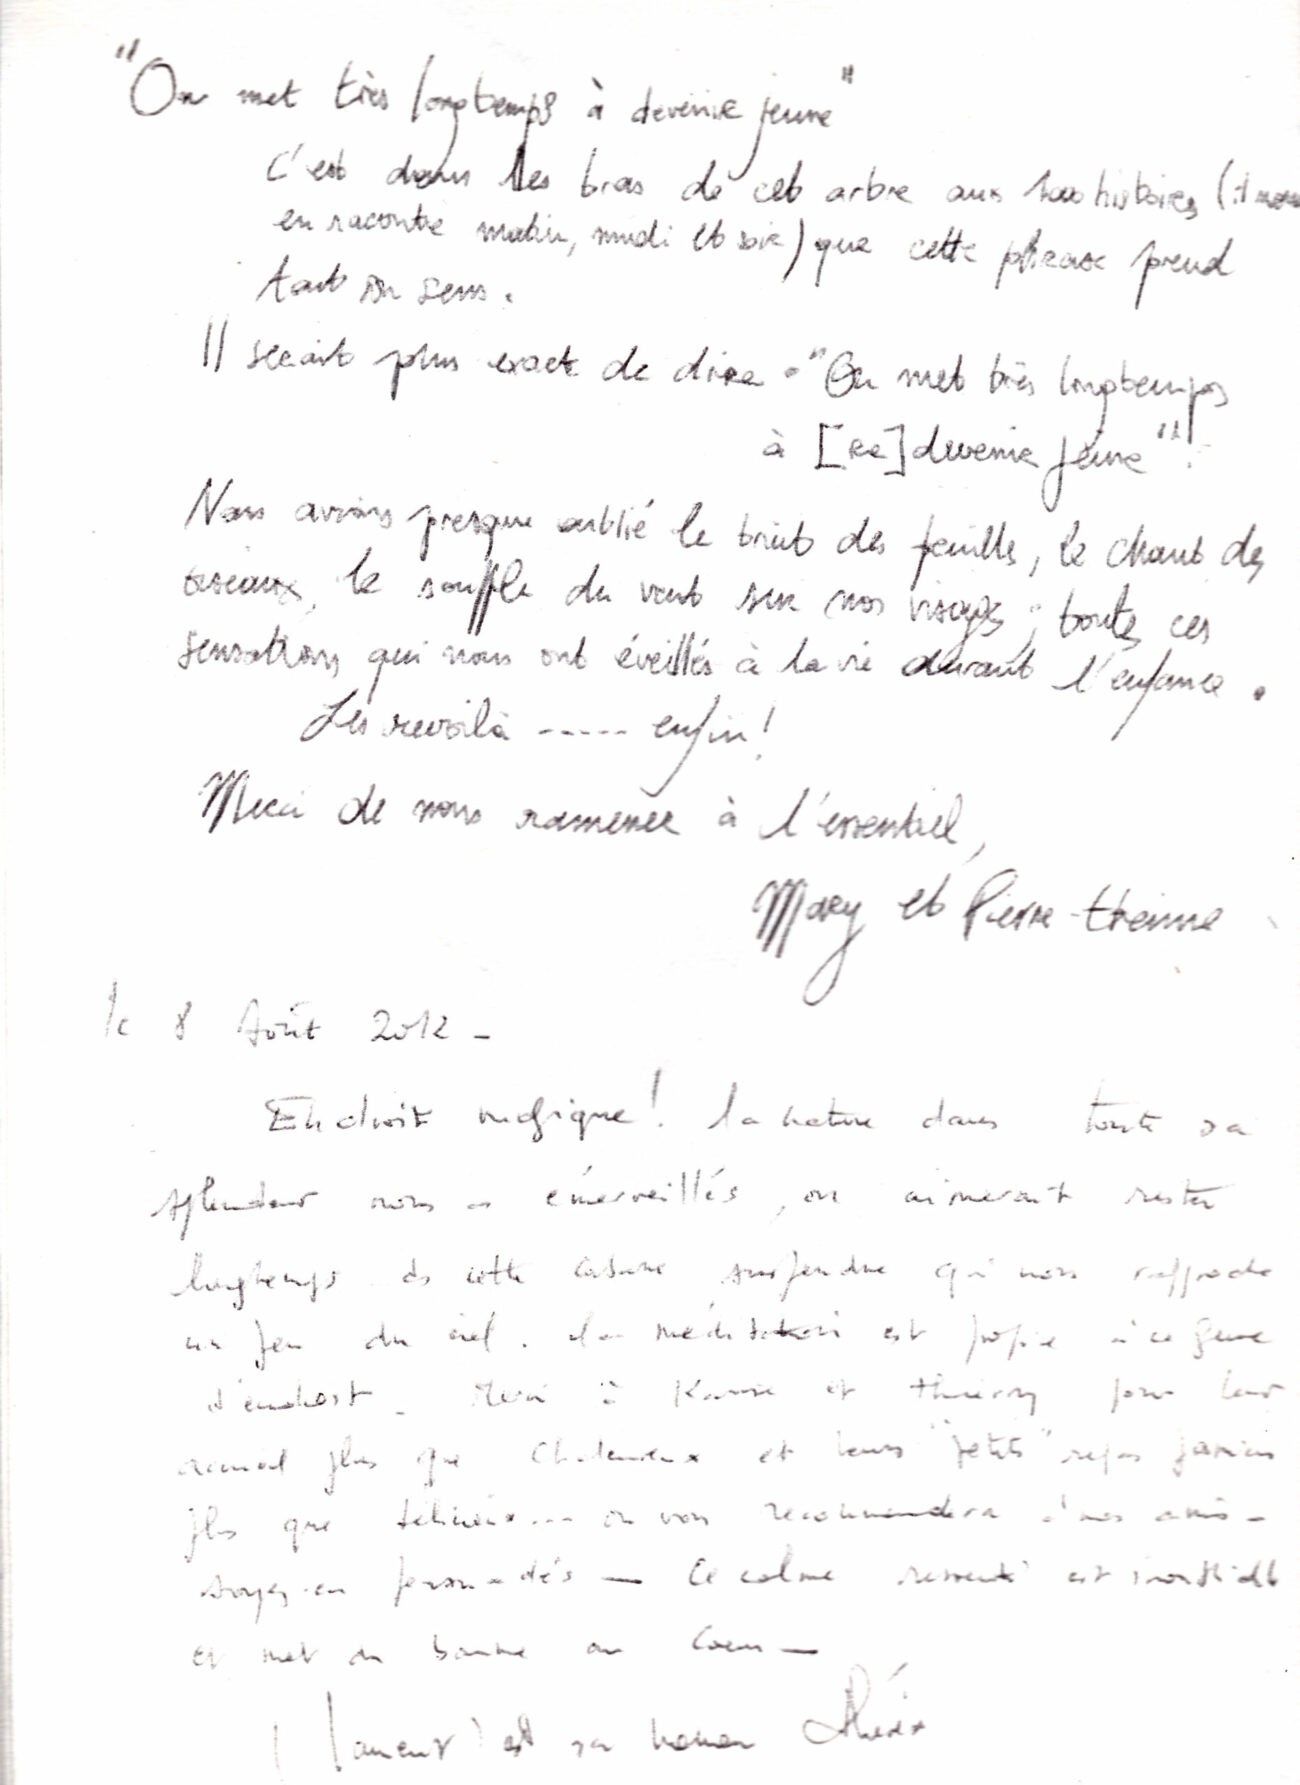 "On met très longtemps à devenir jeune"
C'est dans les bras de cet arbre aux 1000 histoires (il nous
en raconte matin, midi et soir) que cette phrase prend
tout son sens.
Il serait plus exact de dire : "On met très longtemps
à [re]devenir jeune"!
Nous avions presque oublié le bruit des feuilles, le chant des
oiseaux, le souffle du vent sur nos visages ; toutes ces
sensations qui nous ont éveillés à la vie durant l'enfance.
Les revoilà ----- enfin!
Merci de nous ramener à l'essentiel,
Mary et Pierre-Etienne
le 8 Août 2012 -
Endroit magique! la nature dans toute sa
splendeur nous a émerveillés, on aimerait rester
longtemps ds cette cabane suspendue qui nous rapproche
un peu du ciel. la méditation est propice à ce genre
d'endroit. Merci à et Thierry pour leur
accueil plus que chaleureux et leurs "petits" repas
plus que délicieux... on vous recommandera à nos amis -
soyez-en persuadés — Ce calme ressenti est
et met du baume au coeur —
(Laurent) et sa maman